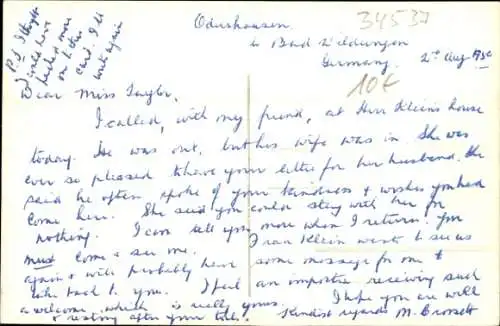 P.S. I thought
I could have
packed more
on to this
card. I'll
write again
Odershausen
b Bad Wildungen
Germany. 2nd Aug.
34537
10€
Dear Miss Taylor,
I called, with my friend, at Herr Klein's house
today. He was out, but his wife was in. She was
ever so pleased to have your letter for her husband. She
said he often spoke of your kindness & wishes you had
come here. She said you could stay with her for
nothing. I can tell you more when I return. You
must come & see me. Frau Klein wants to see us
again & will probably have some message for me to
take back to you. I feel an impostor receiving such
a welcome which is really yours. I hope you are well
& resting after your . Kindest regards M.